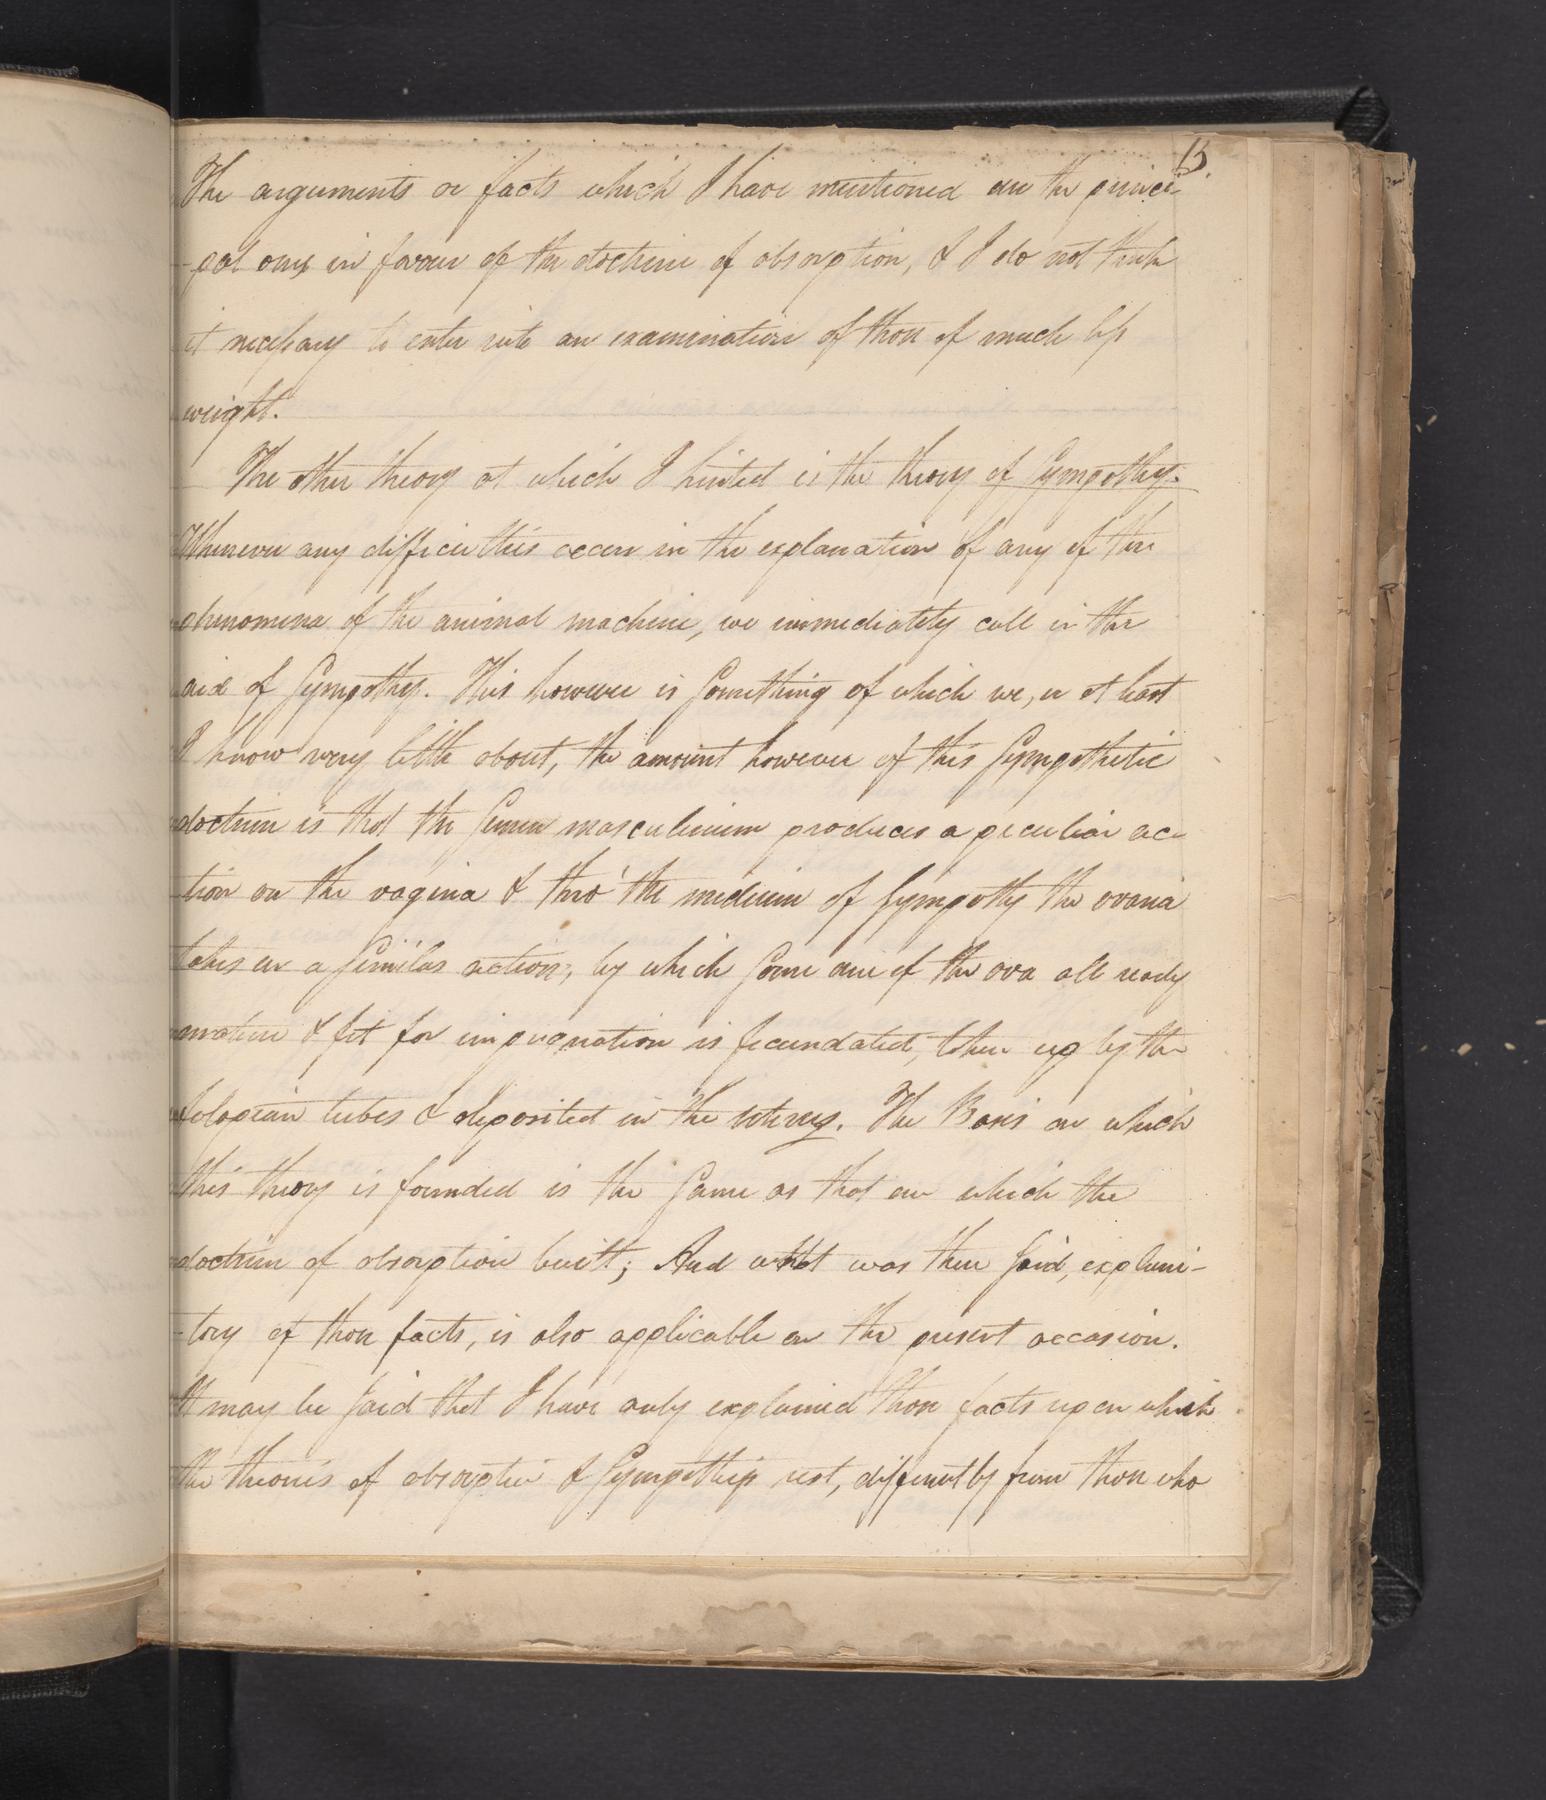 13.
The arguments or facts which I have mentioned are the princi-
-pal ones in favour of the doctrine of absorption, & I do not think
it necessary to enter into an examination of those of much less
weight.
The other theory at which I hinted is the theory of Sympathy.
Whenever any difficulties occur in the explanation of any of the
phenomena of the animal machine, we immediately call in the
aid of Sympathy. This however is something of which we, or at least
I know very little about, the amount however of this Sympathetic
doctrine is that the Semen masculinum produces a peculiar ac-
tion on the vagina & thro' the medium of Sympathy the ovaria
takes on a similar action, by which some one of the ova all ready
mature & fit for impregnation is fecundated, taken up by the
falopian tubes & deposited in the uterus. The Basis on which
this theory is founded is the same as that on which the
doctrine of absorption built; And what was then said, explani-
-tory of those facts, is also applicable on the present occasion.
It may be said that I have only explained those facts upon which
the theories of absorption & Sympathy rest, differently from those who